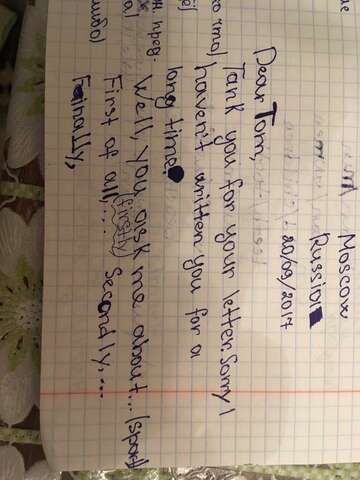 Moscow
Russia
20/09/2017
Dear Tom,
Tank you for your letter. Sorry I
haven't written you for a
long time.
Well, you ask me about... (sport)
First of all, ... (firstly) Secondly, ...
Finally,